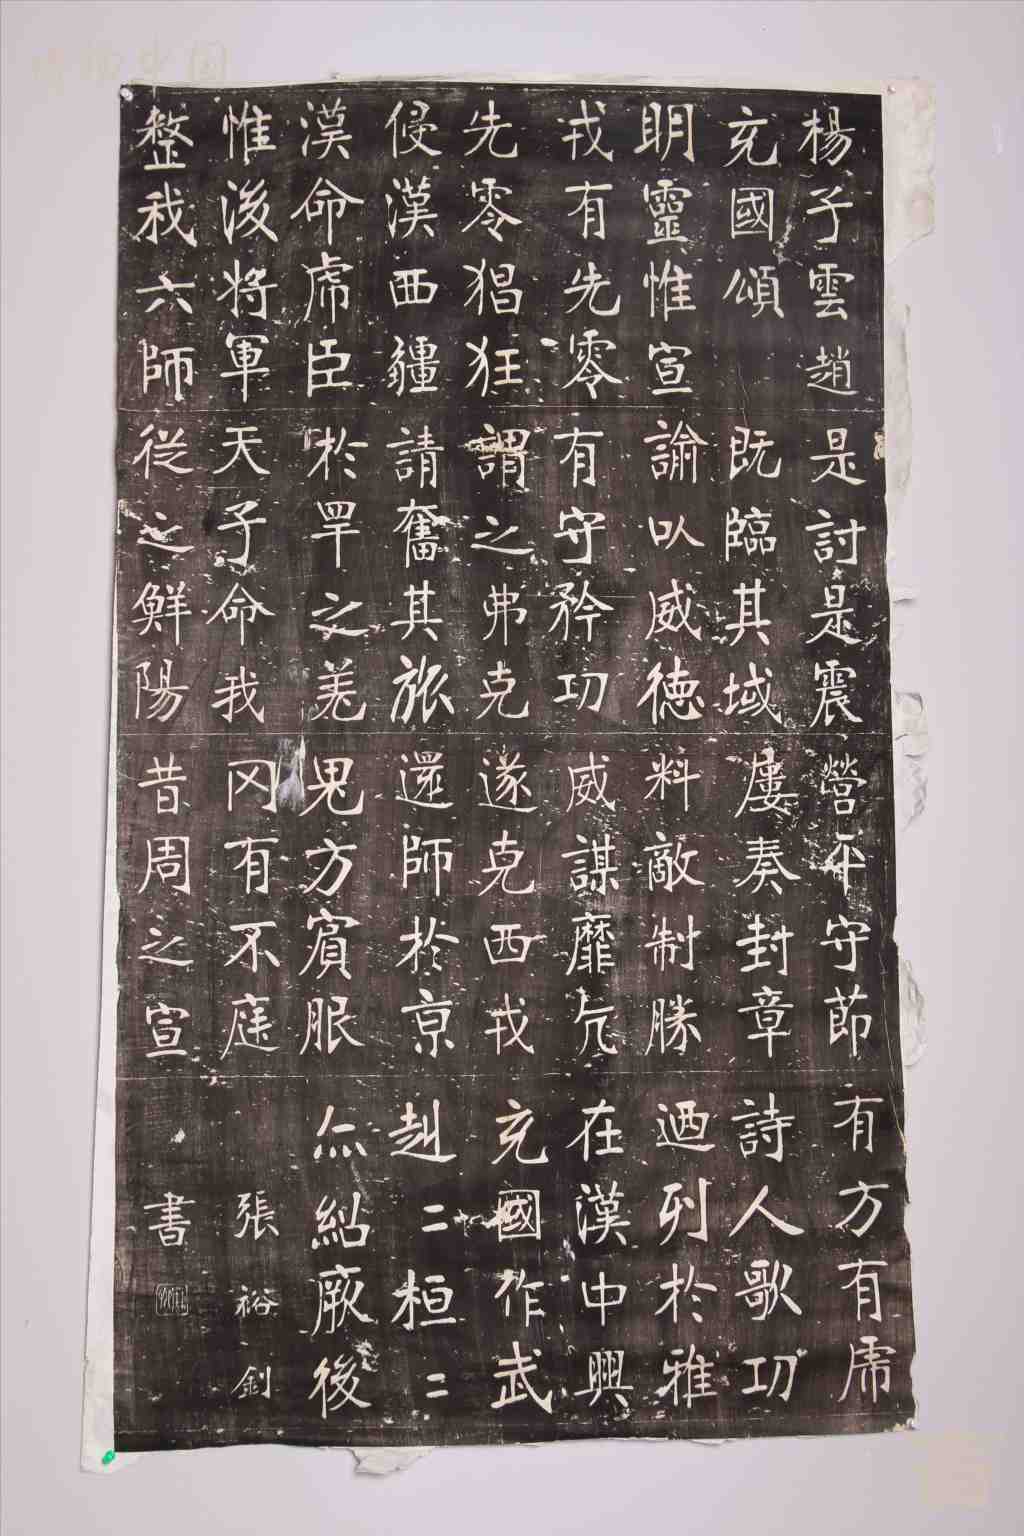 楊子雲趙
充國頌
明靈惟宣
戎有先零
先零猖狂
侵漢西疆
漢命虎臣
惟後將軍
整我六師
是討是震
既臨其域
諭以威德
有守矜功
謂之弗克
請奮其旅
於罕之羌
天子命我
從之鮮陽
營平守節
屢奏封章
料敵制勝
威謀靡亢
遂克西戎
還師於京
鬼方賓服
罔有不庭
昔周之宣
有方有虎
詩人歌功
迺列於雅
在漢中興
充國作武
赳二桓二
亦紹厥後
張裕釗
書